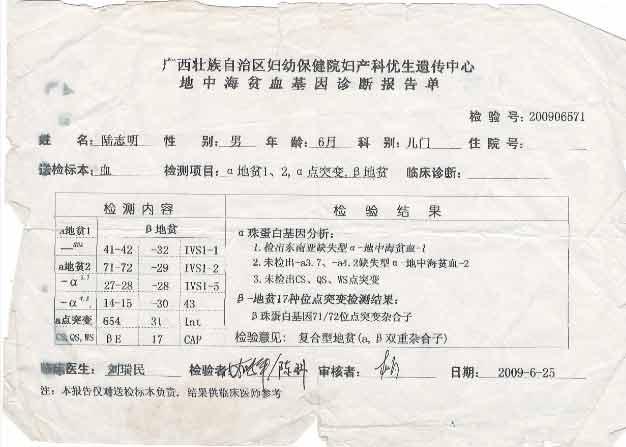 广西壮族自治区妇幼保健院妇产科优生遗传中心
地中海贫血基因诊断报告单
检验号:200906571
姓名:陆志明 性别:男 年龄:6月 科别:儿门 住院号:
送检标本:血 检测项目:α地贫1、2,α点突变,β地贫 临床诊断:
检测内容 检验结果
α地贫1 β地贫
--SEA 41-42 -32 IVS1-1
α地贫2 71-72 -29 IVS1-2
-α3.7 27-28 -28 IVS1-5
-α4.2 14-15 -30 43
α点突变 654 31 Int
CS,QS,WS βE 17 CAP
α珠蛋白基因分析:
1.检出东南亚缺失型α-地中海贫血-1
2.未检出-a3.7、-a4.2缺失型α-地中海贫血-2
3.未检出CS、QS、WS点突变
β-地贫17种位点突变检测结果:
β珠蛋白基因71/72位点突变杂合子
检验意见: 复合型地贫(α,β双重杂合子)
临床医生:刘瑞民 检验者 审核者: 日期: 2009-6-25
注:本报告仅对送检标本负责,结果供临床医师参考